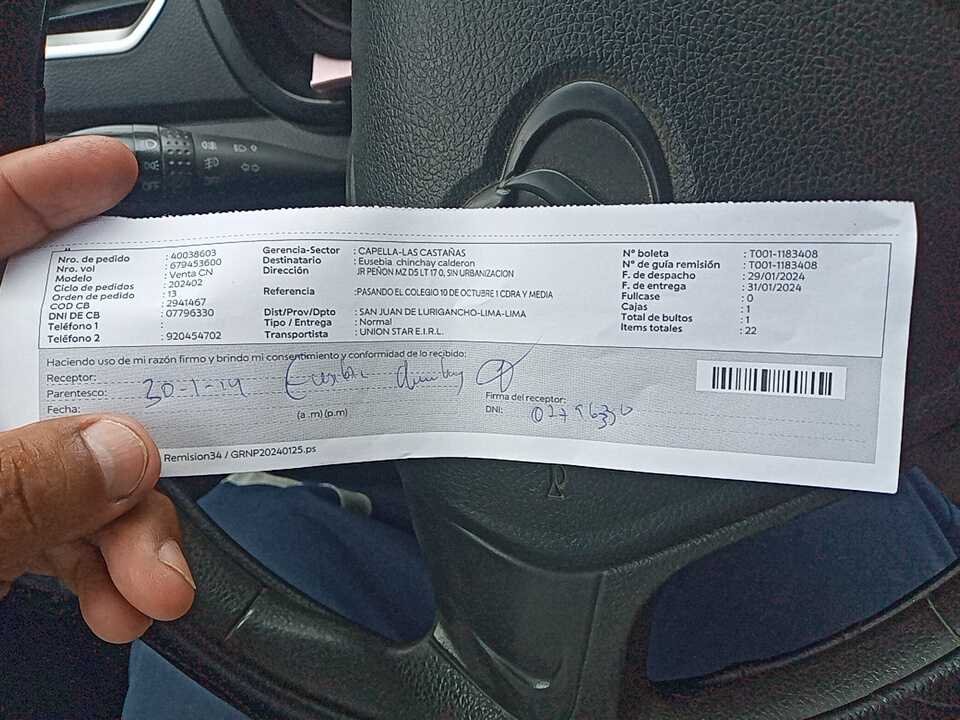 Nro. de pedido : 40038603
Nro. vol : 679453600
Modelo : Venta CN
Ciclo de pedidos : 202402
Orden de pedido : 13
COD CB : 2941467
DNI DE CB : 07796330
Teléfono 1 :
Teléfono 2 : 920454702
Gerencia-Sector : CAPELLA-LAS CASTAÑAS
Destinatario : Eusebia chinchay calderon
Dirección : JR PEÑON MZ D5 LT 17 0, SIN URBANIZACION
Referencia :PASANDO EL COLEGIO 10 DE OCTUBRE 1 CDRA Y MEDIA
Dist/Prov/Dpto : SAN JUAN DE LURIGANCHO-LIMA-LIMA
Tipo / Entrega : Normal
Transportista : UNION STAR E.I.R.L.
N° boleta : T001-1183408
N° de guía remisión : T001-1183408
F. de despacho : 29/01/2024
F. de entrega : 31/01/2024
Fullcase : 0
Cajas : 1
Total de bultos : 1
Items totales : 22
Haciendo uso de mi razón firmo y brindo mi consentimiento y conformidad de lo recibido:
Receptor:
Parentesco:
30-1-
Fecha:
(a .m) (p.m)
Firma del receptor:
DNI:
Remision34 / GRNP20240125.ps
OFF